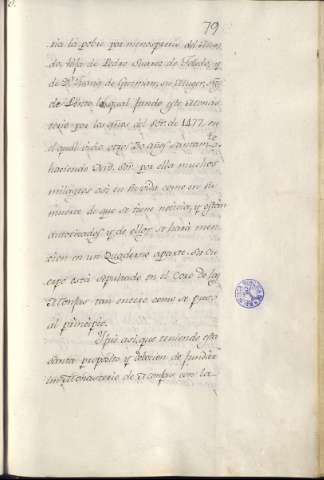 79
ria la pobre por menosprecio del Mun-
do, hija de Pedro Suarez de Toledo, y
de Dª Juana de Guzman, su Muger, Srs
de Pinto, la qual fundo este Monas-
terio por los años del Sor. de 1477. en
el qual vivio otros 30 años santamte
haciendo Ntro. Sor. por ella muchos
milagros asi en su vida como en su
muerte de que se tiene noticia, y estan
autorizados y de ellos se hará men-
cion en un Quaderno aparte. Su Cu-
erpo está sepultado en el Coro de las
Monjas tan entero como se puso
al principio.
Y fue asi, que teniendo esta
santa proposito y devocion de fundar
un Monasterio de Monjas con la-